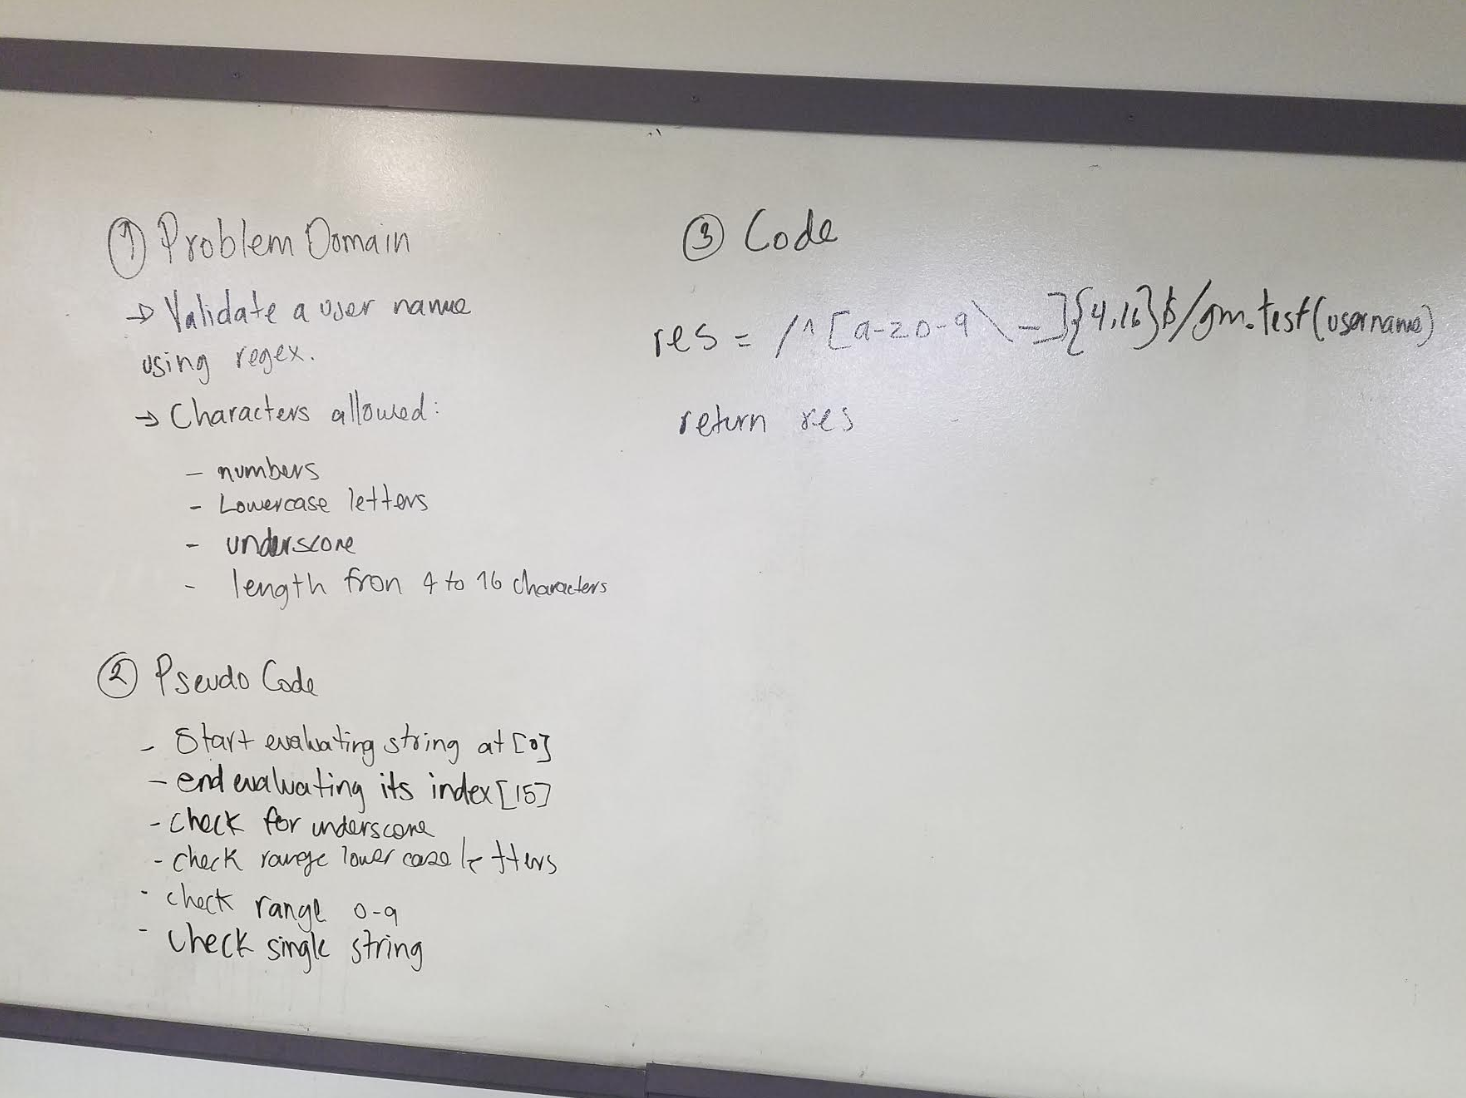 ① Problem Domain
→ Validate a user name
using regex.
→ Characters allowed:
- numbers
- Lowercase letters
- underscore
- length fron 4 to 16 characters
② Pseudo Code
- Start evaluating string at [0]
- end evaluating its index [15]
- check for underscore
- check range lower case letters
- check range 0-9
- check single string
③ Code
res = /^[a-z0-9\_]{4,16}$/gm.test(username)
return res